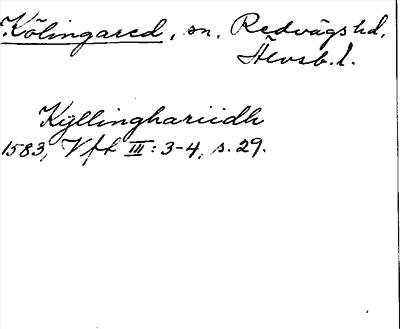 Kölingared, sn, Redvägs hd,
Älvsb. l.
Kyllinghariidh
1583, Vfl III: 3-4, s. 29.